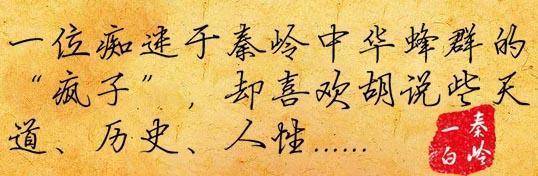 一位痴迷于秦岭中华蜂群的
“疯子”，却喜欢胡说些天
道、历史、人性……
秦岭
一白